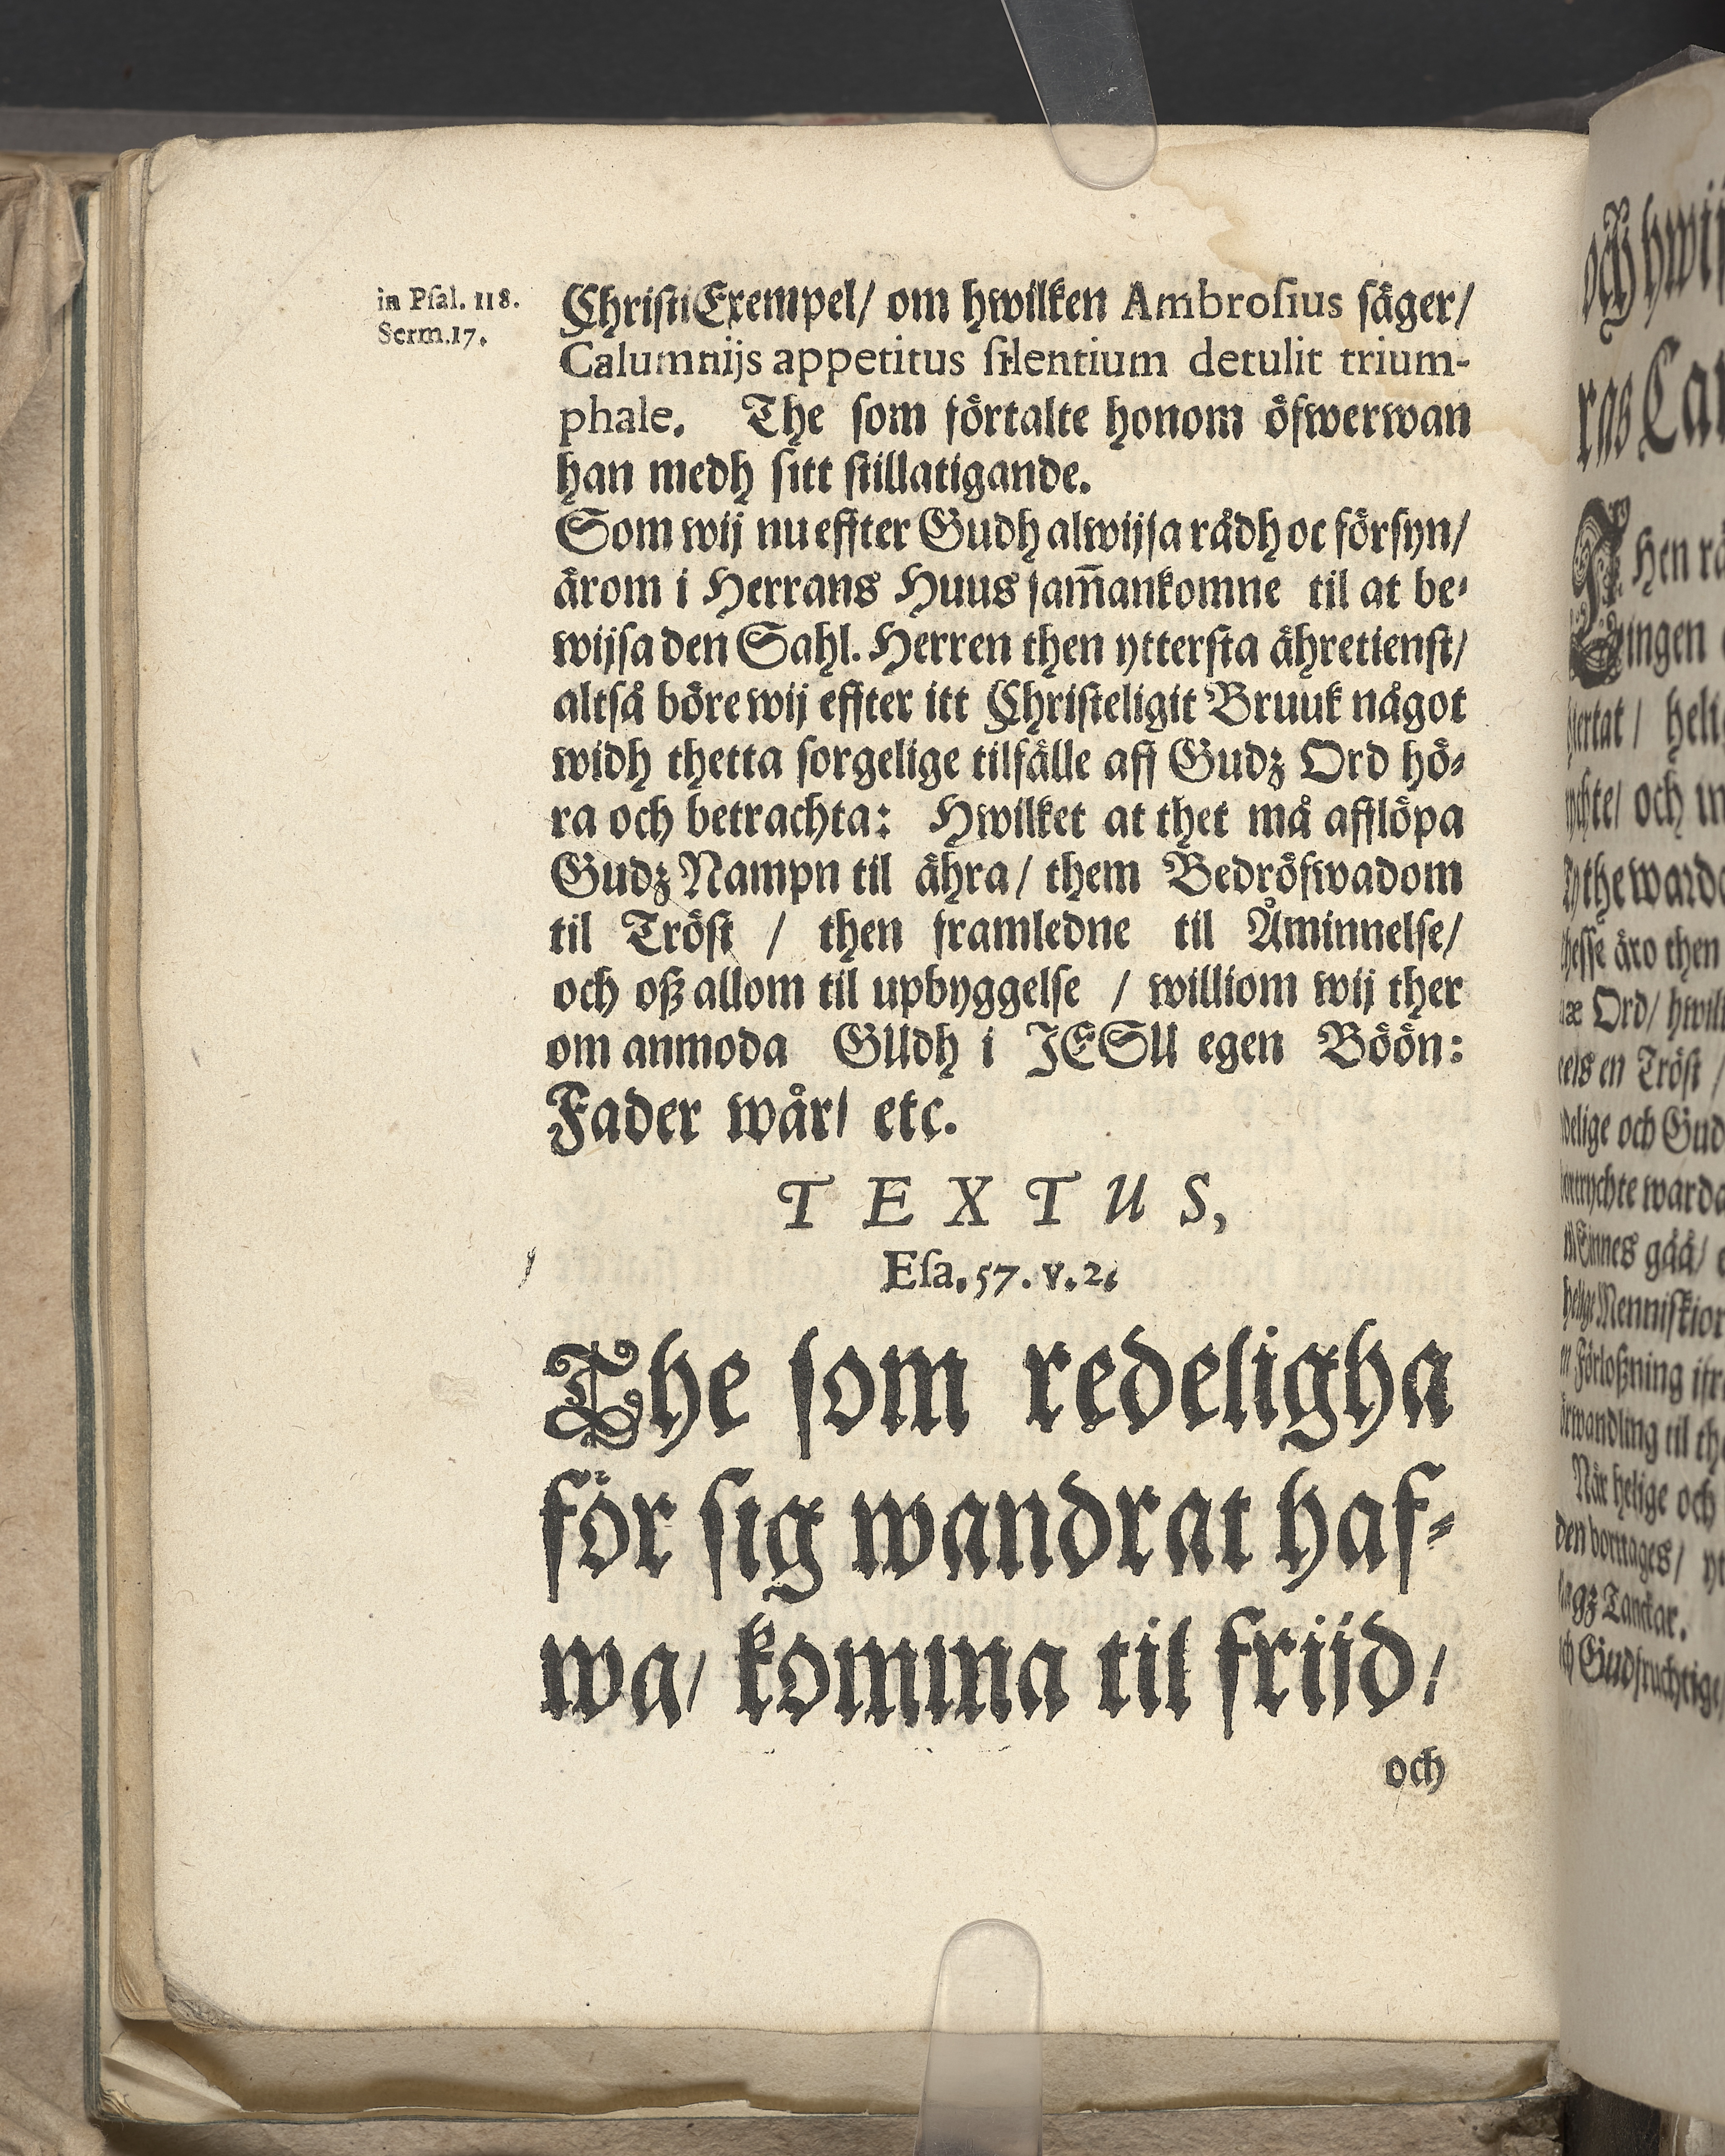 in Pſal. 118.
Serm.17.
Chriſti Exempel/ om hwilken Ambroſius ſäger/
Calumnijs appetitus ſilentium detulit trium-
phale. The ſom förtalte honom öfwerwan
han medh ſitt ſtillatigande.
Som wij nu effter Gudh alwijſa rådh oc förſyn/
ärom i Herrans Huus ſam̃ankomne til at be-
wijſa den Sahl. Herren then ytterſta ähretienſt/
altſå böre wij effter itt Chriſteligit Bruuk något
widh thetta ſorgelige tilfälle aff Gudz Ord hö-
ra och betrachta: Hwilket at thet må afflöpa
Gudz Nampn til ähra/ them Bedröfwadom
til Tröſt / then framledne til Åminnelſe/
och oß allom til upbyggelſe / williom wij ther
om anmoda GUdh i JESU egen Böön:
Fader wår/ etc.
TEXTUS,
Eſa. 57. v. 2.
The ſom redeligha
för ſig wandrat haf-
wa/ komma til friid/
och
och hwij
ras Ca
Hen rä
ingen
helig
och
the warda
äro then
Ord/ hwil
en Tröſt /
och Gud
warda
gåå/
Menniſkior
Förloßning
til
När helige och
Tanckar.